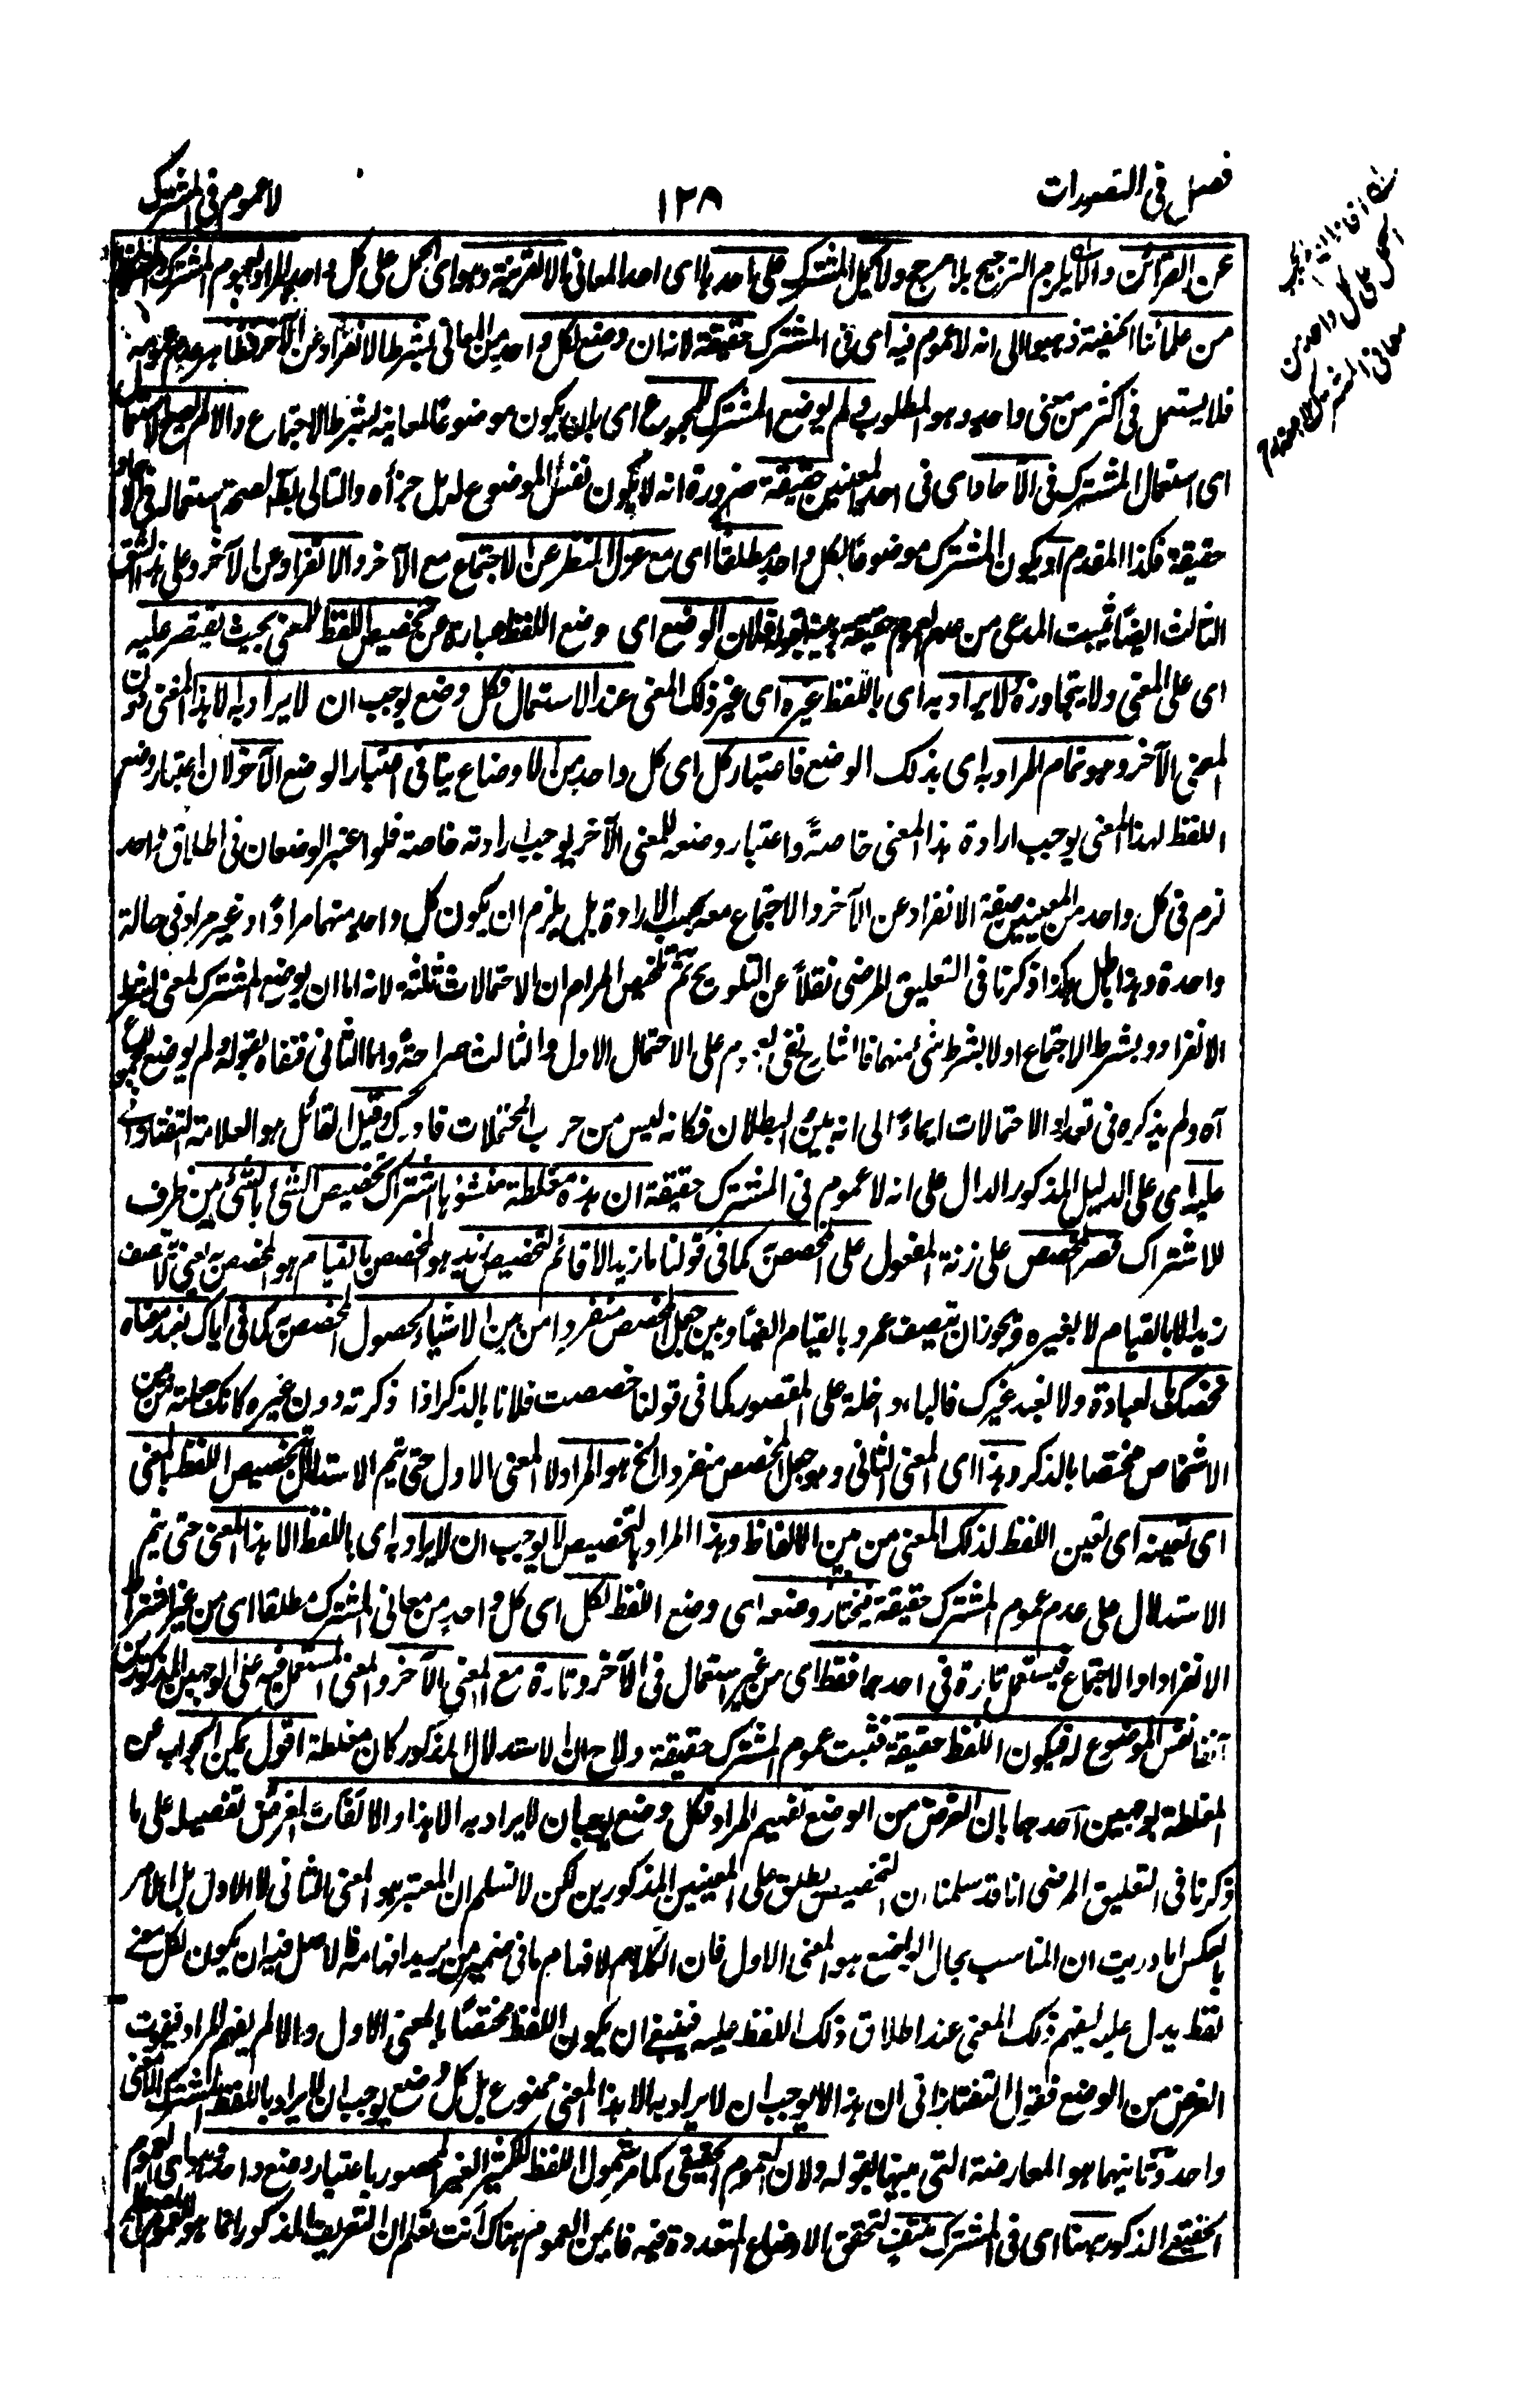 فصل في التصورات
١٢٨
لا عموم في المشترك
عن القرائن والا يلزم الترجيح بلا مرجح ولا يحمل المشترك على احدها اى احد المعانى الا لقرينة وهو اى الحمل على كل واحد المراد بعموم المشترك
من علمائنا الحنفية ذهبوا الى انه لا عموم فيه اى فى المشترك حقيقة لانه ان وضع لكل واحد من المعانى بشرط الانفراد عن الآخر فظاهر عدم عمومه
فلا يستعمل فى اكثر من معنى واحد وهو المطلوب ولم يوضع المشترك للمجموع اى بان يكون موضوعا لمعانيه بشرط الاجتماع والا لم يصح استعماله
اى استعمال المشترك فى الآحاد اى فى احد المعنيين حقيقة ضرورة انه لا يكون نفس الموضوع له بل جزأه والتالى بطل لصحة استعماله فى الآحاد
حقيقة فكذا المقدم او يكون المشترك موضوعا لكل واحد مطلقا اى مع عزل النظر عن الاجتماع مع الآخر والانفراد عن الآخر وعلى هذا الشق
الثالث ايضا يثبت المدعى من عدم العموم حقيقة وبينه بقوله فلان الوضع اى وضع اللفظ عبارة عن تخصيص اللفظ للمعنى بحيث يقتصر عليه
اى على المعنى ولا يتجاوزه لا يراد به اى باللفظ غيره اى غير ذلك المعنى عند الاستعمال فكل وضع يوجب ان لا يراد به الا هذا المعنى دون
المعنى الآخر وهو تمام المراد به اى بذلك الوضع فاعتبار كل اى كل واحد من الاوضاع ينافى اعتبار الوضع الآخر لان اعتبار وضع
اللفظ لهذا المعنى يوجب ارادة هذا المعنى خاصة واعتبار وضعه للمعنى الآخر يوجب ارادته خاصة فلو اعتبر الوضعان فى اطلاق واحد
لزم فى كل واحد من المعنيين صفة الانفراد عن الآخر والاجتماع معه بحسب الارادة بل يلزم ان يكون كل واحد منهما مرادا وغير مراد فى حالة
واحدة وهذا باطل هكذا ذكرنا فى التعليق المرضى نقلا عن التلويح ثم تلخيص المرام ان الاحتمالات ثلثة لانه اما ان يوضع المشترك لمعنى بشرط
الانفراد وبشرط الاجتماع او لا بشرط شئ منهما فاشار نفى العموم على الاحتمال الاول والثالث صراحة واما الثانى فنفاه بقوله ولم يوضع للمجموع
آه ولم يذكره فى تعداد الاحتمالات ايماء الى انه بين البطلان فكانه ليس من حزب المحتملات فادرك وقيل القائل هو العلامة التفتازانى
عليه اى على الدليل المذكور الدال على انه لا عموم فى المشترك حقيقة ان هذه مغلطة منشؤها اشتراك تخصيص الشئ بالشئ بين ظرف
للاشتراك قصر المخصص على زنة المفعول على المخصص به كما فى قولنا ما زيد الا قائم لتخصيص زيد هو المخصص بالقيام هو المخصص به يعنى لا يتصف
زيد الا بالقيام لا بغيره ويجوز ان يتصف عمرو بالقيام ايضا وبين جعل المخصص منفردا من بين الاشياء بحصول المخصص به كما فى اياك نعبد معناه
نخصك بالعبادة ولا نعبد غيرك فالباء داخلة على المقصور كما فى قولنا خصصت فلانا بالذكر اذا ذكرته دون غيره كانك جعلته من بين
الاشخاص مختصا بالذكر وهذا اى المعنى الثانى وهو جعل المخصص منفردا الخ هو المراد لا المعنى الاول حتى يتم الاستدلال بتخصيص اللفظ بالمعنى
اى تعيينه اى تعيين اللفظ لذلك المعنى من بين الالفاظ وهذا المراد بالتخصيص لا يوجب ان لا يراد به اى باللفظ الا هذا المعنى حتى يتم
الاستدلال على عدم عموم المشترك حقيقة فيختار وضعه اى وضع اللفظ لكل اى كل واحد من معانى المشترك مطلقا اى من غير اشتراط
الانفراد او الاجتماع فيستعمل تارة فى احدهما فقط اى من غير استعمال فى الآخر وتارة مع المعنى الآخر والمعنى المستعمل فيه على الوجهين المذكورين
آنفا نفس الموضوع له فيكون اللفظ حقيقة فثبت عموم المشترك حقيقة ولاح ان الاستدلال المذكور كان مغلطة اقول يمكن الجواب عن
المغلطة بوجهين احدهما بان الغرض من الوضع تفهيم المراد فكل وضع يوجب ان لا يراد به الا هذا والا لفات الغرض تفصيله على ما
ذكرنا فى التعليق المرضى انا قد سلمنا ان التخصيص يطلق على المعنيين المذكورين لكن لا نسلم ان المعتبر هو المعنى الثانى لا الاول بل الامر
بالعكس اما دريت ان المناسب بحال الواضع هو المعنى الاول فان الكلام لافهام ما فى ضمير من يريد افهامه فالاصل فيه ان يكون لكل معنى
لفظ يدل عليه ليفهم ذلك المعنى عند اطلاق ذلك اللفظ عليه فينبغى ان يكون اللفظ مختصا بالمعنى الاول والا لم يفهم المراد فيفوت
الغرض من الوضع فقول التفتازانى ان هذا لا يوجب ان لا يراد به الا هذا المعنى ممنوع بل كل وضع يوجب ان لا يراد باللفظ المشترك الا معنى
واحد وثانيهما هو المعارضة التى بينها بقوله ولان العموم الحقيقى كما مر شمول اللفظ للكثير الغير المحصور باعتبار وضع واحد وهو اى العموم
الحقيقى المذكور ههنا اى فى المشترك منتف لتحقق الاوضاع المتعددة فيه فاين العموم هناك انت تعلم ان التعريف المذكور انما هو للعموم
الحمل على كل واحد من
معانى المشترك